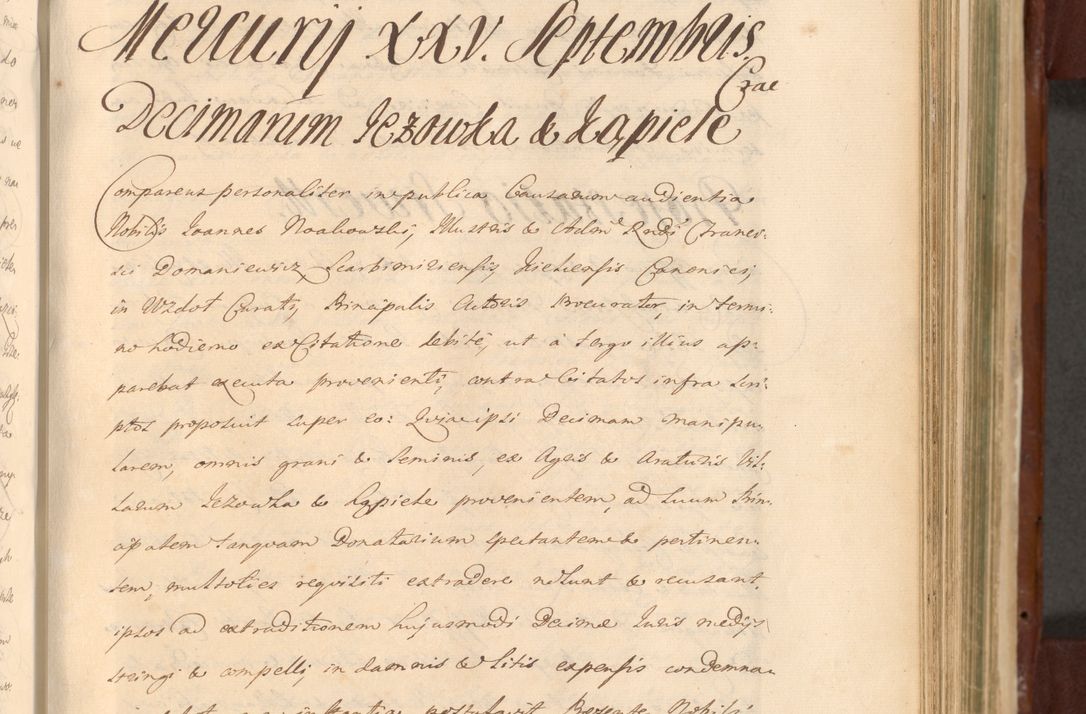 Mercurij XXV. Septembris
Czae
Decimarum Jezowka & Kąpiele
Comparens personaliter in publica Causarum audientia
Nobilis Joannes Noakowski, Illustris & Adm Rndi Francis-
sci Domaniewicz, Scarbimiriensis, Kielensis Canonici,
in Wzdoł Curati, Principalis Actoris Procurator, in termi-
no hodierno ex Citatione debite, ut à tergo illius ap-
parebat executa provenienti, contra Citatos infra scri-
ptos proposuit super eo: Quia ipsi Decimam manipu-
larem, omnis grani & seminis, ex Agris & Araturis Vil-
larum Jezowka & Kąpiele provenientem, ad suum Prin-
cipalem tanquam Donatarium spectantem & pertinen-
tem, multoties requisiti extradere nolunt & recusant.
ipsos ad extraditionem hujusmodi Decimæ Juris medijs
stringi & compelli, in damnis & litis expensis condemna-
postulavit Nobili